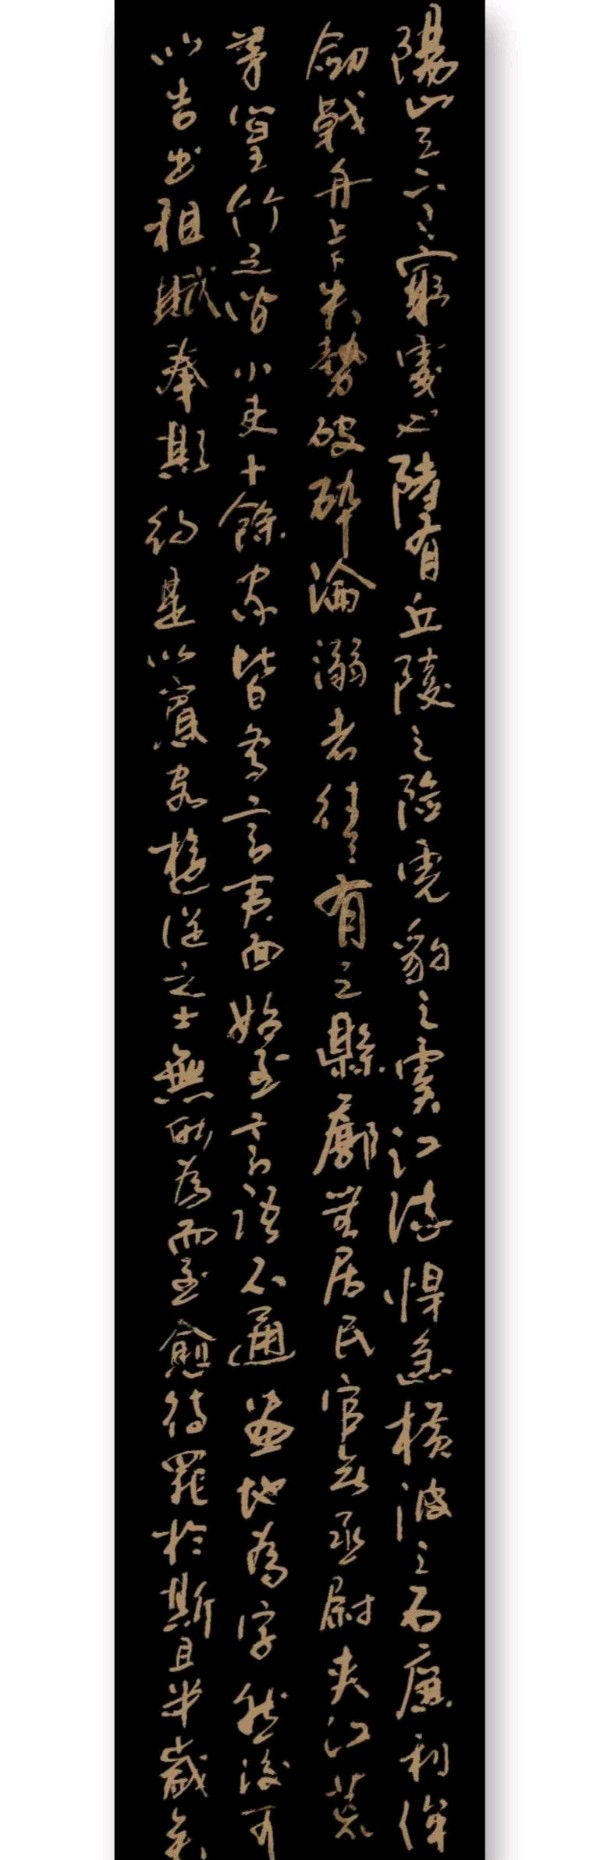 陽山天下之窮處也陸有丘陵之險虎豹之虞江流悍急橫波之石廉利侔
劍戟舟上下失勢破碎淪溺者往往有之縣廓無居民官無丞尉夾江荒
茅篁竹之間小吏十餘家皆鳥言夷面始至言語不通畫地為字然後可
以告出租賦奉期約是以賓客遊從之士無所為而至愈待罪於斯且半歲矣